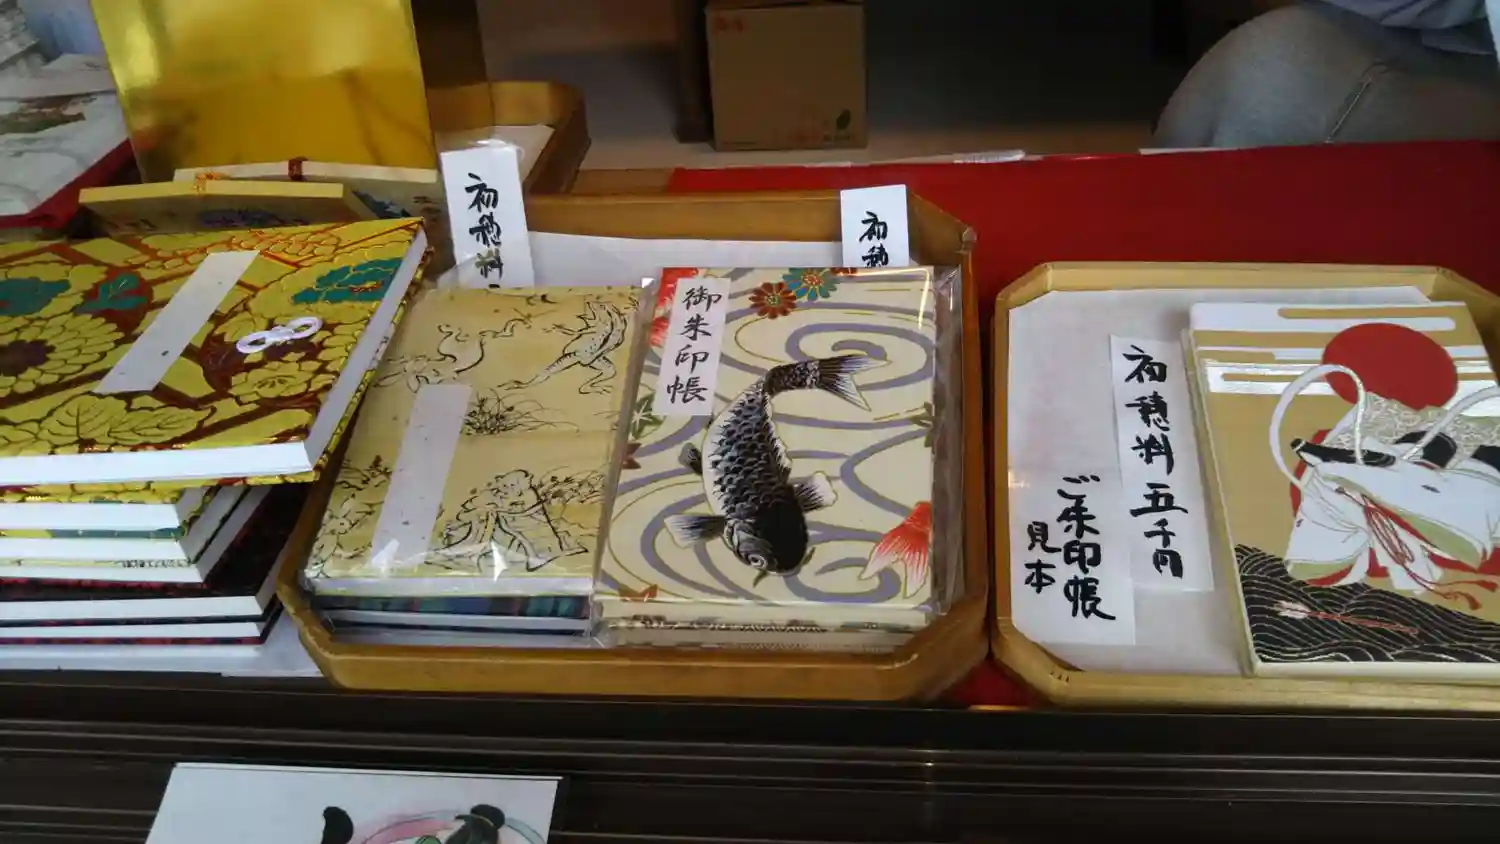 初穂料
初穂
御朱印帳
初穂料 五千円
ご朱印帳
見本